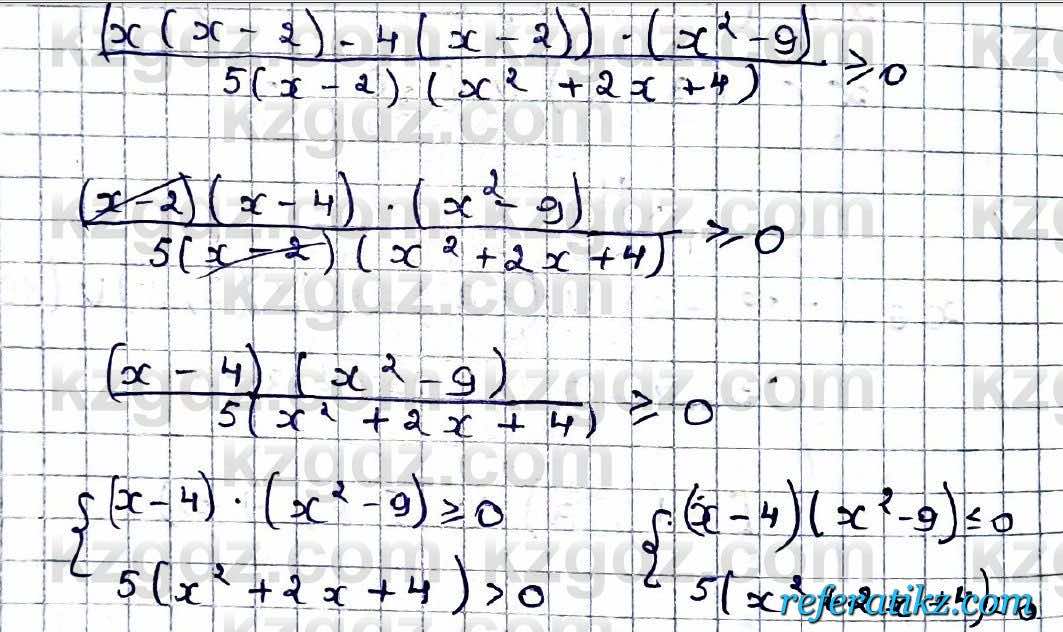 (x(x-2)-4(x-2))·(x²-9)
5(x-2)(x²+2x+4) ≥0
(x-2)(x-4)·(x²-9)
5(x-2)(x²+2x+4) ≥0
(x-4)(x²-9)
5(x²+2x+4) ≥0
{(x-4)·(x²-9)≥0
5(x²+2x+4)>0
{(x-4)(x²-9)≤0
5(x²
kzgdz.com
referatikz.com